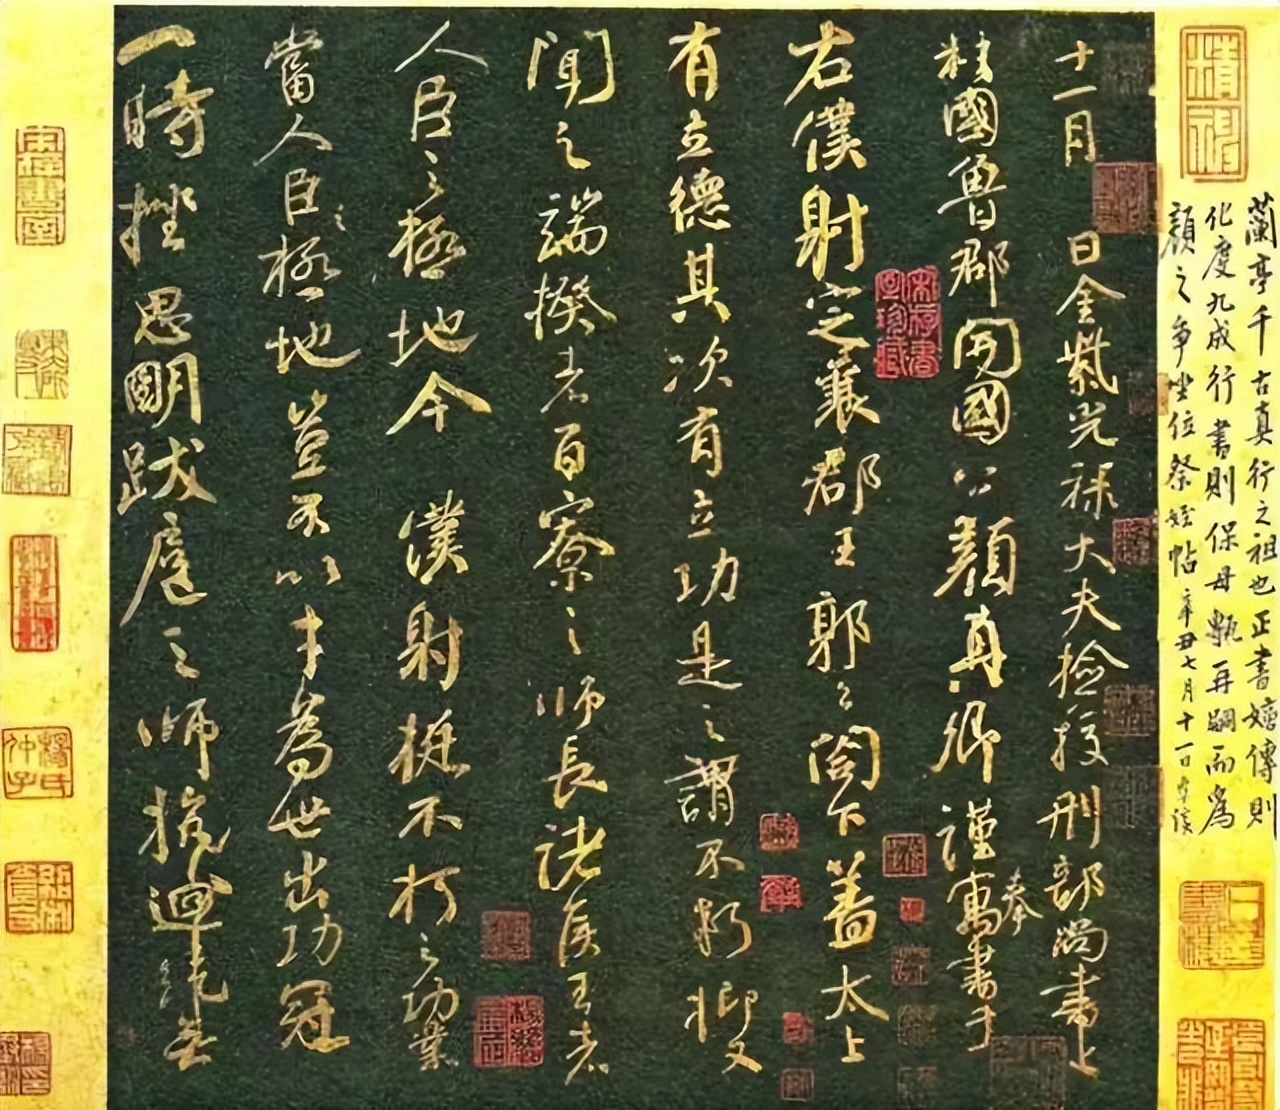 蘭亭千古真行之祖也正書嫡傳則
化度九成行書則保母甎再嗣而為
顏之爭坐位祭姪帖 辛丑七月十一日
十一月 日金紫光祿大夫檢挍刑部尚書上
柱國魯郡開國公顏真卿謹寓奉書于
右僕射定襄郡王郭公閤下蓋太上
有立德其次有立功是之謂不朽抑又
聞之端揆者百寮之師長諸侯王者
人臣之極地今 僕射挺不朽之功業
當人臣之極地豈不以才為世出功冠
一時挫思明跋扈之師抗迴紇無